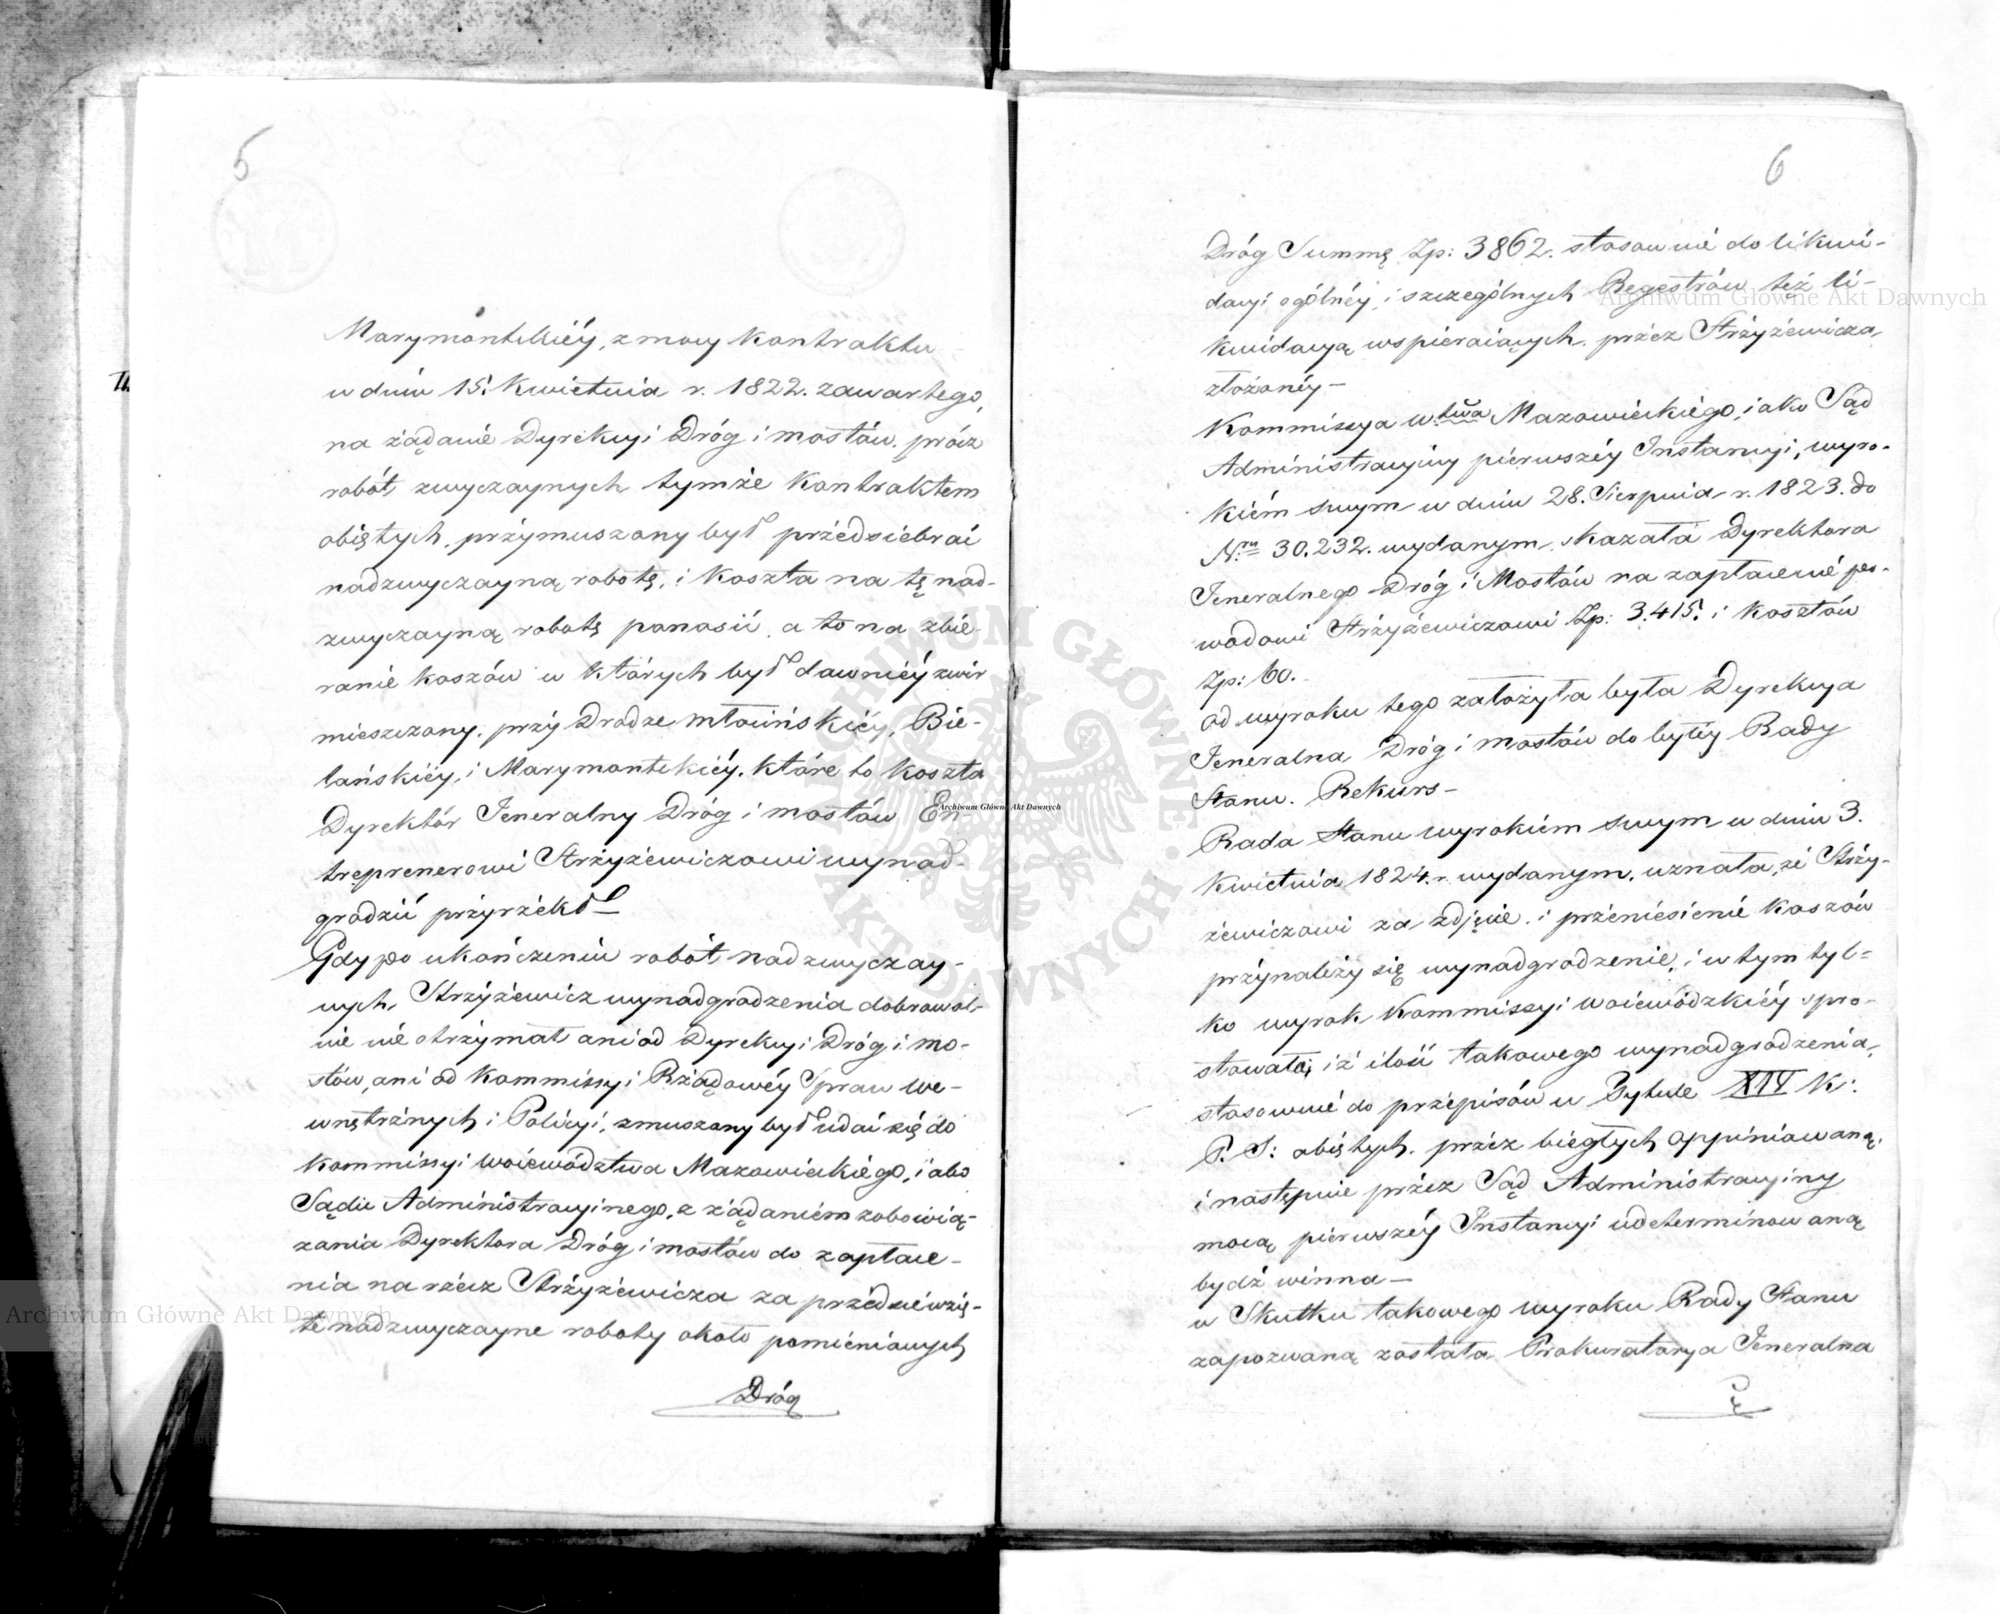 5
Marymontskiéy, z mocy Kontraktu
w dniu 15. Kwietnia r. 1822. zawartego,
na żądanie Dyrekcyi Dróg i mostów, prócz
robót zwyczaynych tymże Kontraktem
obiętych, przymuszony był przedsiebrać
nadzwyczayną robotę, i Koszta na tę nad-
zwyczayną robotę ponosić, a to na zbie-
ranie koszów w których był dawniéy zwir
mieszczony, przy Drodze młocińskiéy, Bie-
lańskiéy, i Marymontskiéy, które to koszta
Dyrektór Jeneralny Dróg i mostów En-
treprenerowi Strzyżewiczowi wynad-
grodzić przyrzekł —
Gdy po ukończeniu robót nadzwyczay-
nych, Strzyżewicz wynadgrodzenia dobrowol-
nie nie otrzymał ani od Dyrekcyi Dróg i mo-
stów, ani od Kommissyi Rządowéy Spraw We-
wnętrznych i Policyi, zmuszony był udać się do
Kommissyi Woiewództwa Mazowieckiego, iako
Sądu Administracyinego, z żądaniem zobowią-
zania Dyrektora Dróg i mostów do zapłace-
nia na rzecz Strzyżewicza za przedsiewzię-
te nadzwyczayne roboty około pomienionych
Dróg
6
Dróg Summę Zp: 3862. stosownie do likwi-
dacyi ogólnéy i szczególnych Regestrów też li-
kwidacyą wspieraiących, przez Strzyżewicza
złożonéy —
Kommissya W.twa Mazowieckiego, iako Sąd
Administracyiny pierwszéy Instancyi, wyro-
kiém swym w dniu 28. Sierpnia r. 1823. do
N.ru 30.232. wydanym, skazała Dyrektora
Jeneralnego Dróg i Mostów na zapłacenié po-
wodowi Strzyżewiczowi Zp: 3.415. i Kosztów
Zp: 60.
Od wyroku tego założyła była Dyrekcya
Jeneralna Dróg i mostów do byłéy Rady
Stanu. Rekurs —
Rada Stanu wyrokiem swym w dniu 3.
Kwietnia 1824. r. wydanym, uznała, że Strzy-
żewiczowi za zdjęcie i przeniesienie koszów
przynależy się wynadgrodzenie, i w tym tyl=
ko wyrok Kommissyi Woiewódzkiéy spro-
stowała, iż ilość takowego wynadgrodzenia,
stosownie do przepisów w Tytule XIV K:
P. S: obiętych, przez biegłych oppiniowaną,
i następnie przez Sąd Administracyiny
mocą pierwszéy Instancyi udeterminowaną
bydź winna —
w Skutku takowego wyroku Rady Stanu
zapozwaną została Prokuratorya Jeneralna
Archiwum Główne Akt Dawnych
Archiwum Główne Akt Dawnych
Archiwum Główne Akt Dawnych
ARCHIWUM GŁÓWNE AKT DAWNYCH